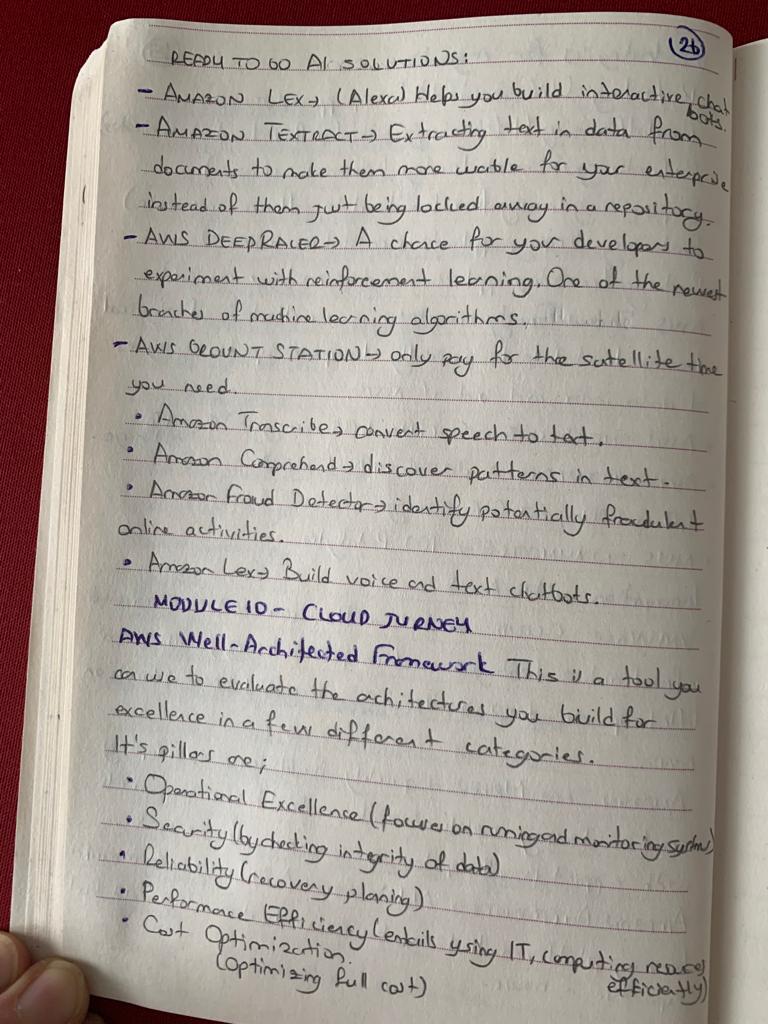 26
READY TO GO AI SOLUTIONS:
- AMAZON LEX→ (Alexa) Helps you build interactive chat bots.
- AMAZON TEXTRACT→ Extracting text in data from
documents to make them more usable for your enterprise
instead of them just being locked away in a repository.
- AWS DEEPRACER→ A chance for your developers to
experiment with reinforcement learning. One of the newest
branches of machine learning algorithms.
- AWS GROUNT STATION→ only pay for the satellite time
you need.
• Amazon Transcribe→ convert speech to text.
• Amazon Comprehend→ discover patterns in text.
• Amazon Fraud Detector→ identify potentially fraudulent
online activities.
• Amazon Lex→ Build voice and text chatbots.
MODULE 10 - CLOUD JURNEY
AWS Well-Architected Framework This is a tool you
can use to evaluate the architectures you build for
excellence in a few different categories.
It's pillars are;
• Operational Excellence (focuses on running and monitoring systems)
• Security (by checking integrity of data)
• Reliability (recovery planing)
• Performance Efficiency (entails using IT, computing resources
efficiently)
• Cost Optimization.
(optimizing full cost)